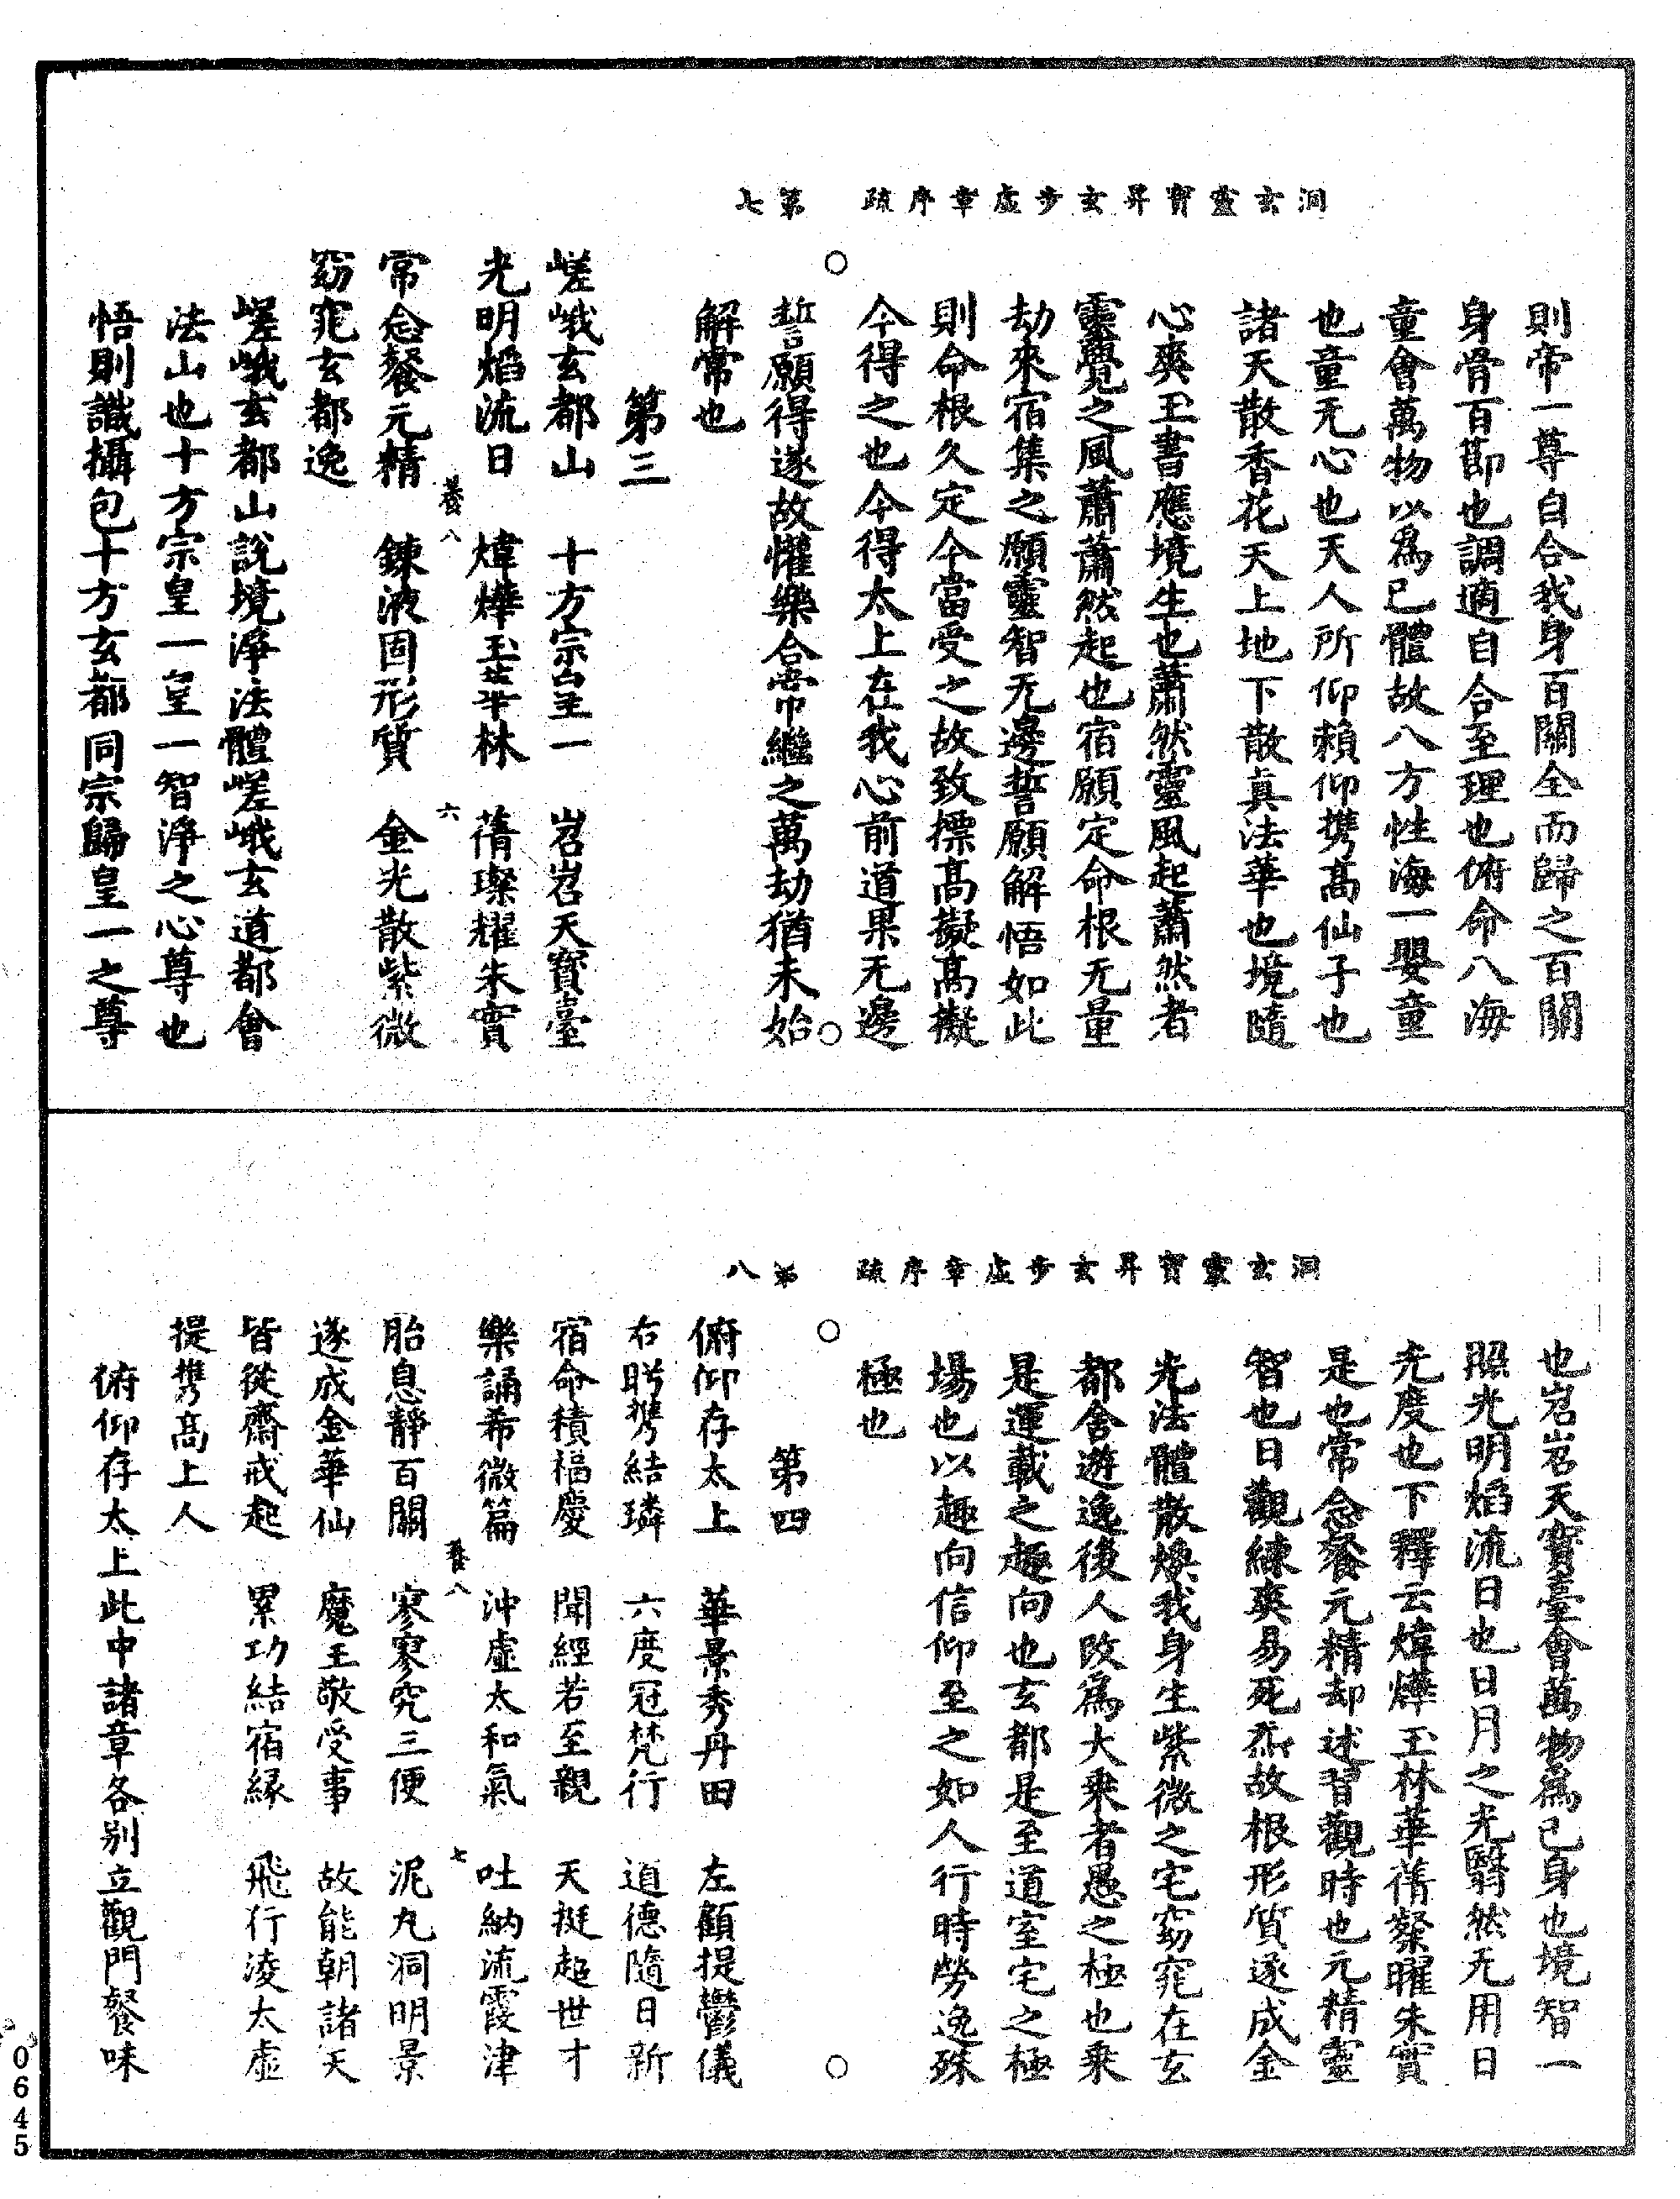 洞玄靈寶昇玄步虛章序疏　第七
則帝一尊自合我身百關全而歸之百關
身骨百節也調適自合至理也俯命八海
童會萬物以為己體故八方性海一嬰童
也童无心也天人所仰賴仰携高仙子也
諸天散香花天上地下散真法華也境隨
心爽玉書應境生也蕭然靈風起蕭然者
靈覺之風蕭蕭然起也宿願定命根无量
劫來宿集之願靈智无邊誓願解悟如此
則命根久定今當受之故致摽高擬高擬
今得之也今得太上在我心前道果无邊
誓願得遂故懽樂合常繼之萬劫猶未始
解常也
第三
嵯峨玄都山　十方宗皇一　岧岧天寶臺
光明焰流日　煒燁玉華林　蒨璨耀朱實
養八　六
常念餐元精　鍊液固形質　金光散紫微
窈窕玄都逸
嵯峨玄都山說境淨法體嵯峨玄道都會
法山也十方宗皇一皇一智淨之心尊也
悟則識攝包十方玄都同宗歸皇一之尊
洞玄靈寶昇玄步虛章序疏　第八
也岧岧天寶臺會萬物為己身也境智一
照光明焰流日也日月之光翳然无用日
光度也下釋云煒燁玉林華蒨粲曜朱實
是也常念餐元精却述習觀時也元精靈
智也日觀練爽易死炁故根形質遂成金
光法體散煥我身生紫微之宅窈窕在玄
都舍遊逸後人改為大乘者愚之極也乘
是運載之趣向也玄都是至道室宅之極
場也以趣向信仰至之如人行時勞逸殊
極也
第四
俯仰存太上　華景秀丹田　左顧提鬱儀
右眄携結璘　六度冠梵行　道德隨日新
宿命積福慶　聞經若至親　天挺超世才
樂誦希微篇　沖虛太和氣　吐納流霞津
養八　七
胎息靜百關　寥寥究三便　泥丸洞明景
遂成金華仙　魔王敬受事　故能朝諸天
皆從齋戒起　累功結宿緣　飛行淩太虛
提携高上人
俯仰存太上此中諸章各別立觀門餐味
0645